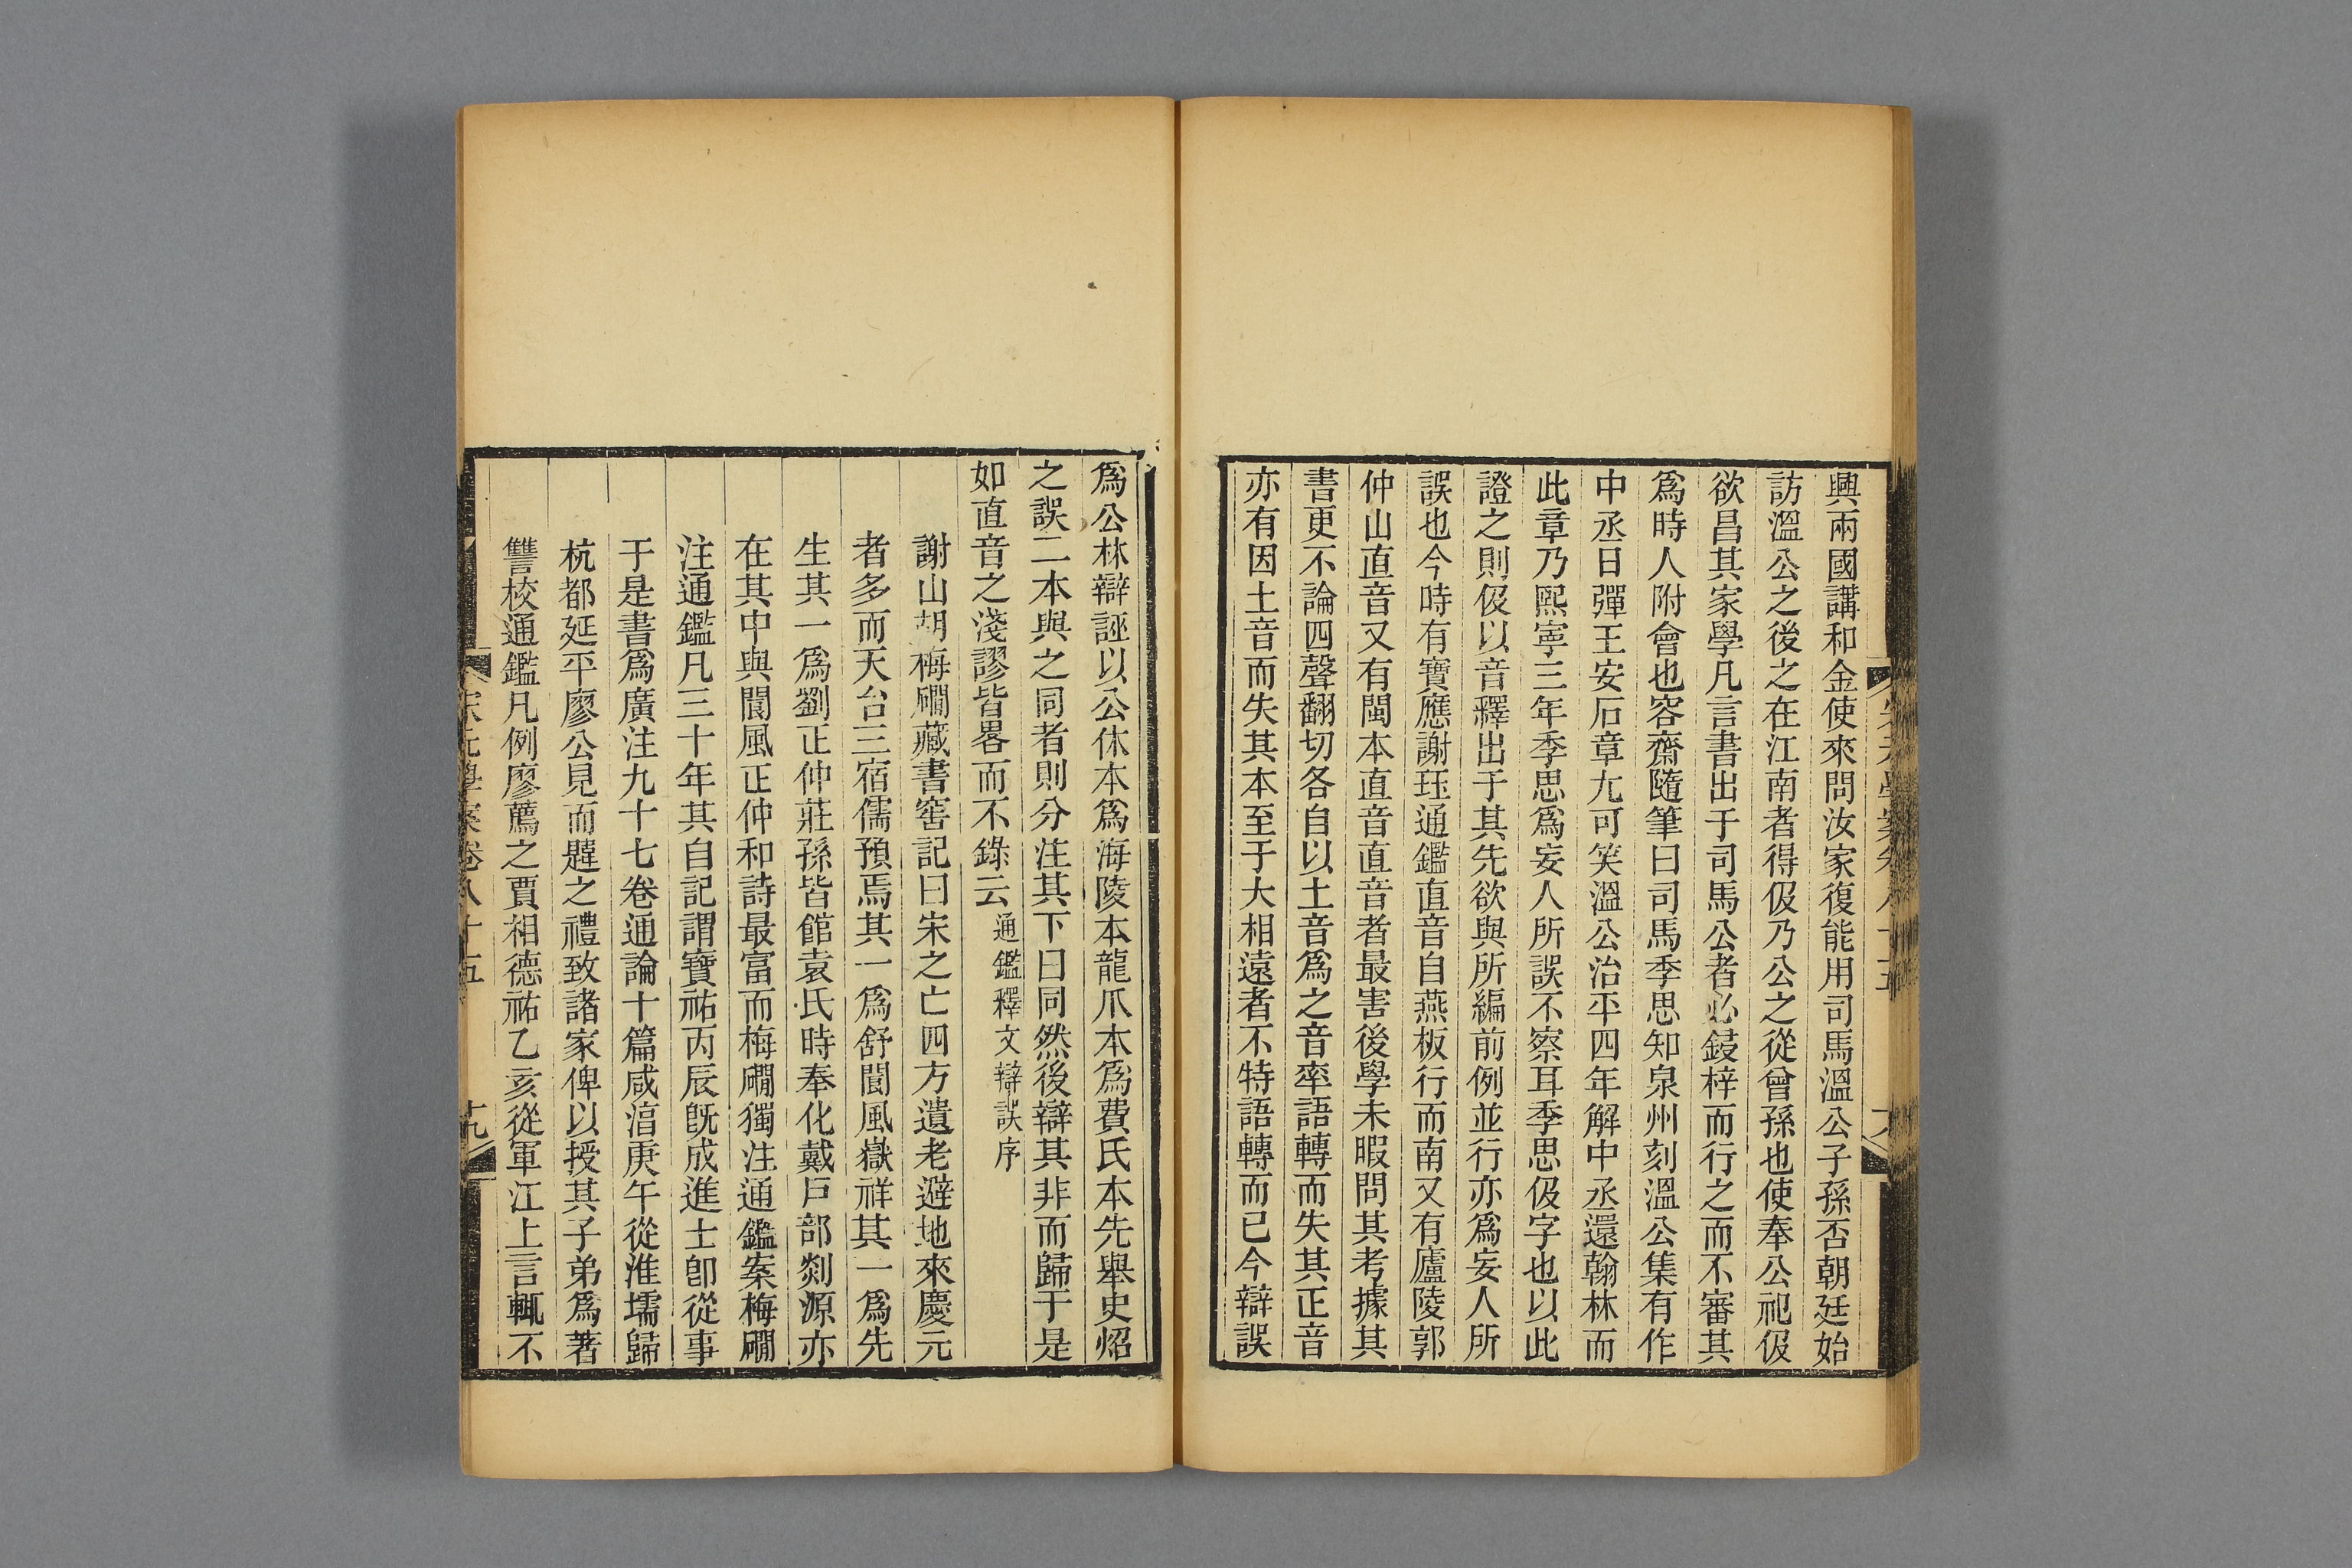 興兩國講和金使來問汝家復能用司馬溫公子孫否朝廷始
訪溫公之後之在江南者得伋乃公之從曾孫也使奉公祀伋
欲昌其家學凡言書出于司馬公者必鋟梓而行之而不審其
爲時人附會也容齋隨筆曰司馬季思知泉州刻溫公集有作
中丞日彈王安石章尤可笑溫公治平四年解中丞還翰林而
此章乃熙寧三年季思爲妄人所誤不察耳季思伋字也以此
證之則伋以音釋出于其先欲與所編前例並行亦爲妄人所
誤也今時有寶應謝珏通鑑直音自燕板行而南又有廬陵郭
仲山直音又有閩本直音直音者最害後學未暇問其考據其
書更不論四聲翻切各自以土音爲之音率語轉而失其正音
亦有因土音而失其本至于大相遠者不特語轉而已今辯誤
爲公休辯誣以公休本爲海陵本龍爪本爲費氏本先舉史炤
之誤二本與之同者則分注其下曰同然後辯其非而歸于是
如直音之淺謬皆畧而不錄云通鑑釋文辯誤序
謝山胡梅磵藏書窖記曰宋之亡四方遺老避地來慶元
者多而天台三宿儒預焉其一爲舒閬風嶽祥其一爲先
生其一爲劉正仲莊孫皆館袁氏時奉化戴戶部剡源亦
在其中與閬風正仲和詩最富而梅磵獨注通鑑案梅磵
注通鑑凡三十年其自記謂寶祐丙辰旣成進士卽從事
于是書爲廣注九十七卷通論十篇咸湻庚午從淮壖歸
杭都延平廖公見而韙之禮致諸家俾以授其子弟爲著
讐校通鑑凡例廖薦之賈相德祐乙亥從軍江上言輒不
宋元學案卷八十五
十九